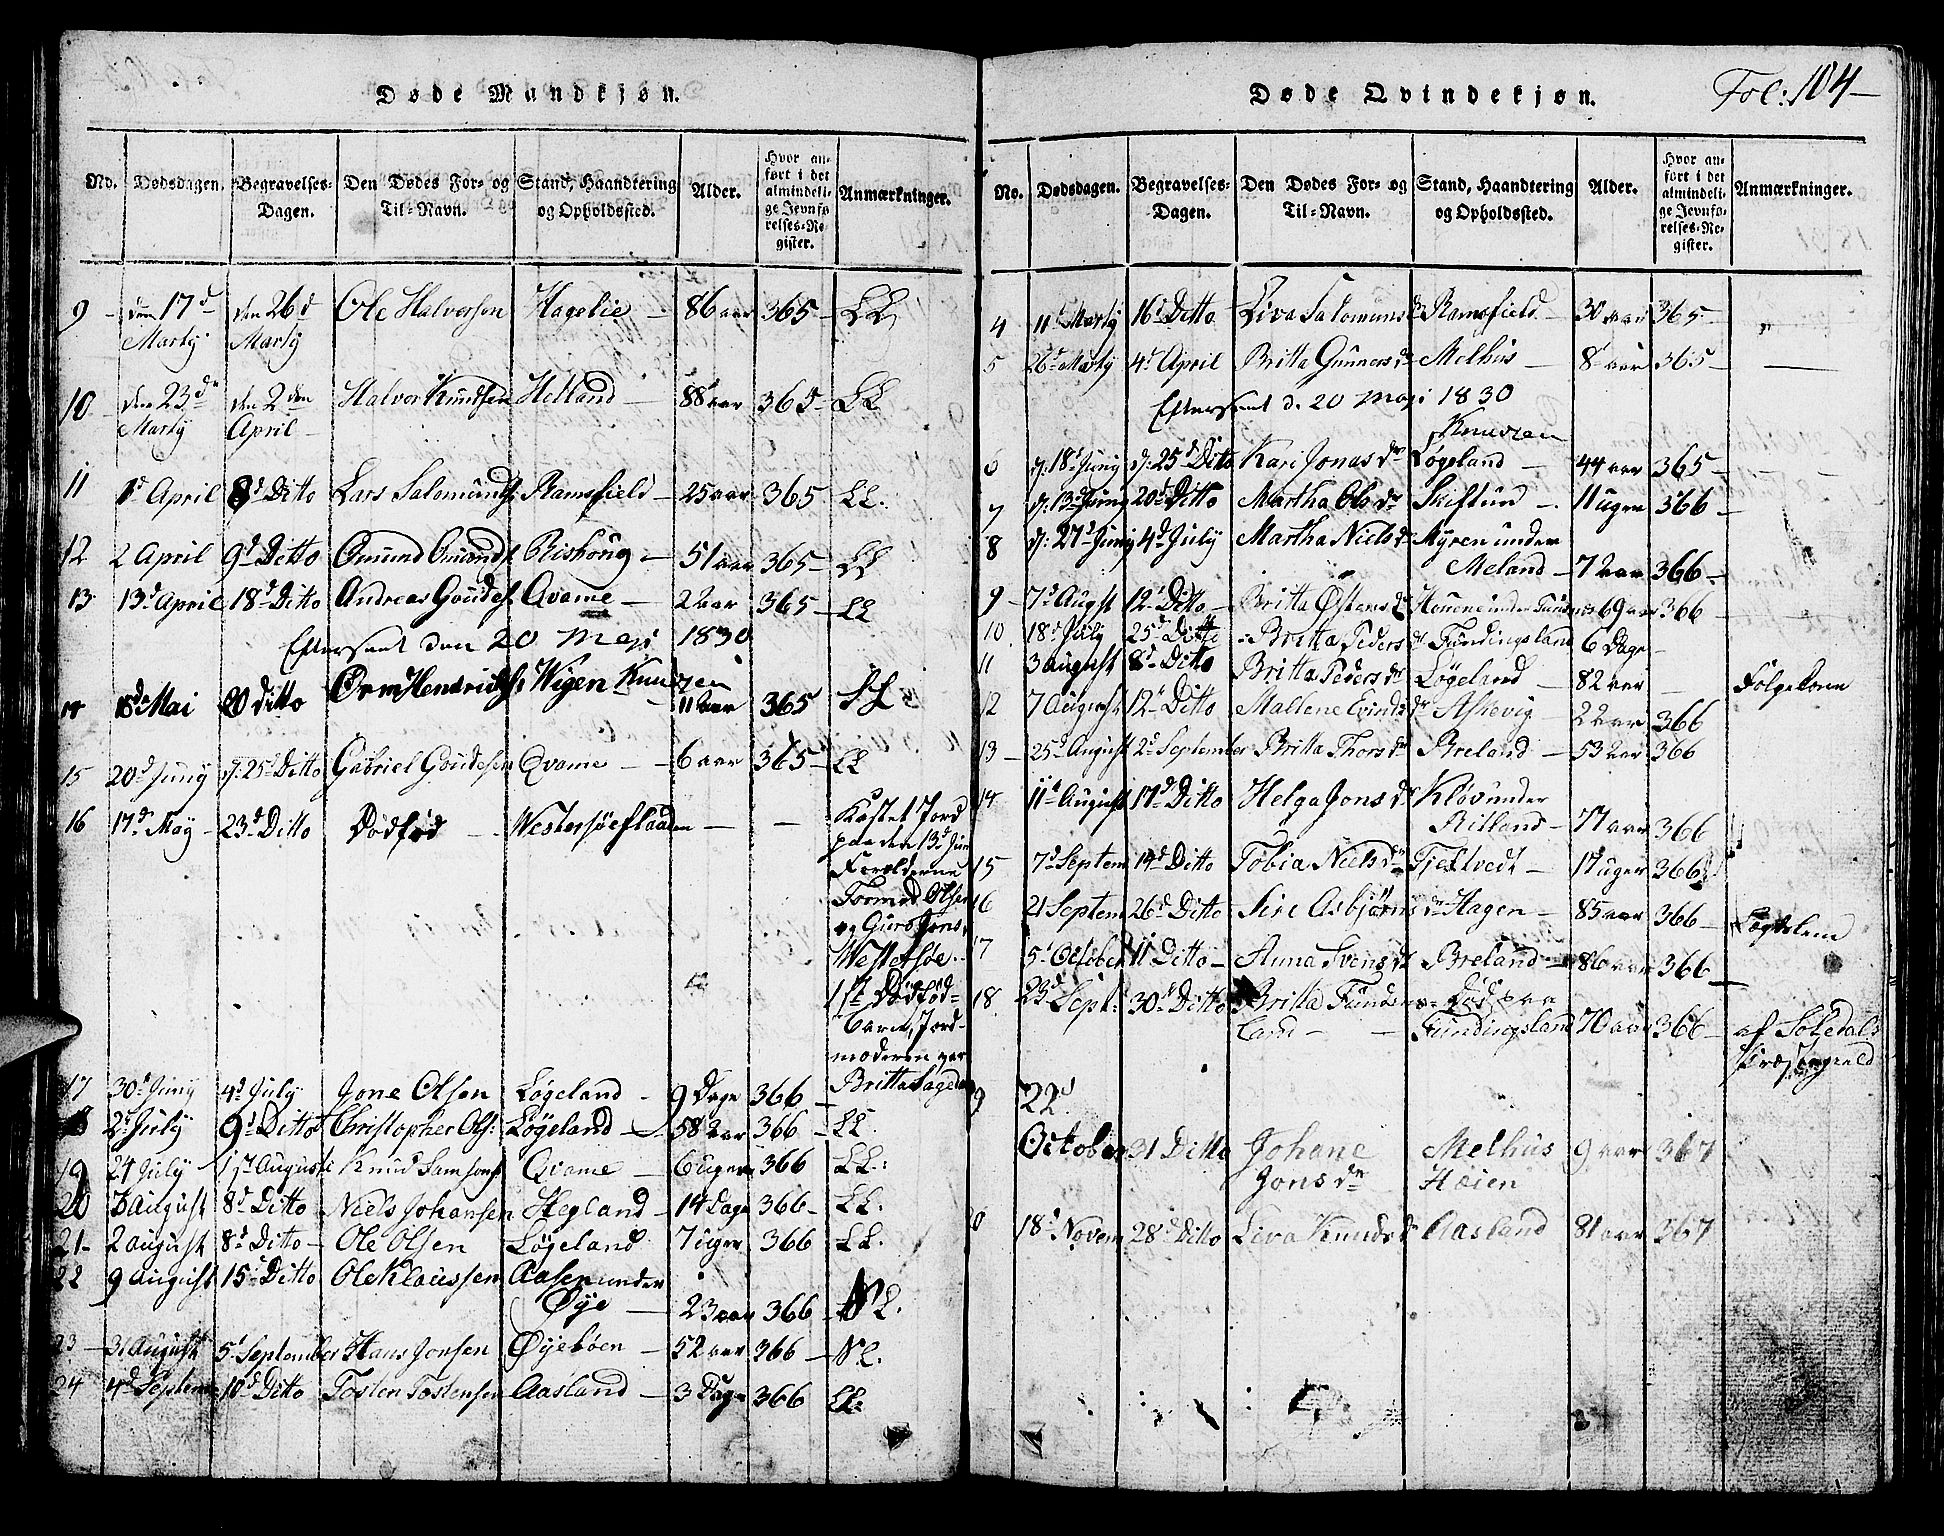 Døde Mandkjøn.
No. Dødsdagen. Begravelses-Dagen. Den Dødes For- og Til-Navn. Stand, Haandtering og Opholdssted. Alder. Hvor anført i det almindelige Jevnførelses-Register. Anmærkninger.
9 den 17d Marty den 26d Marty Ole Halvorsen Hagelie 86 aar 365 LL
10 den 23d Marty den 2den April Halvor Knudsen Helland 88 aar 365 LL
11 1d April 8d Ditto Lars Salomunds. Ramsfield 25 aar 365 LL.
12 2 April 9d Ditto Omund Omunds. Rishoug 51 aar 365 LL
13 13d April 18d Ditto Andreas Goudes. Qvame 2 aar 365 LL
Efterseet den 20 Maji 1830
Knudzen
14 15de Mai 20 Ditto Orm Hendrichs. Wigen 11 aar 365 LL
15 20d Juny d: 25d Ditto Gabriel Goudesen Qvame 6 aar 365 LL
16 17d May 23d Ditto Dødfød Westersøeflaaden — — Kastet Jord
paa den 13d Juni
Forældrene
Tormod Olsen
og Guro Jons.
Westersøe.
1st Dødfød
Barn, Jord-
moderen var
Britta Lageda
17 30d Juny 4d July Jone Olsen Løgeland 9 Dage 366
18 2d July 9d Ditto Christopher Ols: Løgeland 58 aar 366 LL.
19 24 July 1st Augusti Knud Samsons. Qvame 6 uger 366 LL.
20 3 August 8d Ditto Niels Johansen Hegland 14 Dage 366 LL.
21 2 august 8d Ditto Ole Olsen Løgeland 7 uger 366 LL.
22 9 august 15d Ditto Ole Klaussen Aasen under
Øye 23 aar 366 NL.
23 31 August 5d September Hans Jonsen Øyeboen 52 aar 366 NL.
24 4d Septem 10d Ditto Tosten Tostensen Aasland 3 Dage 366 LL.
Døde Qvindekjøn. Fol: 104
No. Dødsdagen. Begravelses-Dagen. Den Dødes For- og Til-Navn. Stand, Haandtering og Opholdssted. Alder. Hvor anført i det almindelige Jevnførelses-Register. Anmærkninger.
4 11d Marty 16d Ditto Liva Salomunsdr Ramsfield 30 aar 365 "
5 26d Marty 4d April Britta Gunnersdr Melhus 8 aar 365 —
Efterseet d. 20 Maji 1830
Knudzen
6 d: 18d Juny d: 25d Ditto Kari Jonasdr Løgeland 44 aar 365
7 d: 13d Juny 20d Ditto Martha Olsdr Skiftun 11 uger 366
8 d: 27d Juny 4d July Martha Nielsdr Myren under
Meland 72 aar 366
9 7d Augst 12d Ditto Britta Østensdr 69 aar 366
10 18d July 25d Ditto Britta Pedersdr Fundingsland 6 Dage
11 3 august 8d Ditto Britta Pedersdr Løgeland 82 aar — Følgekone
12 7 August 12d Ditto Maltene Evindsdr Askevig 22 aar 366
13 25d August 2d September Britta Thorsdr Breland 53 aar 366
14 11d August 17d Ditto Helga Jonsdr Kløv under
Ritland 77 aar 366
15 7d Septem 14d Ditto Tobia Nielsdr Tjeltvedt 17 uger 366
16 21 Septem 26d Ditto Siri Asbjørnsdr Hagen 85 aar 366 Lægdslem
17 5d October 11 Ditto Anna Svensdr Breland 86 aar 366
18 23d Sept: 30d Ditto Britta Fundens- Død paa
Land Fundingsland 70 aar 366 af Sogedals
Præstegield
9 22d
October 31 Ditto Johane Melhus 9 aar 367
Jonsdr Høien
0 18d Novem 28d Ditto Liva Knudsdr Aasland 81 aar 367